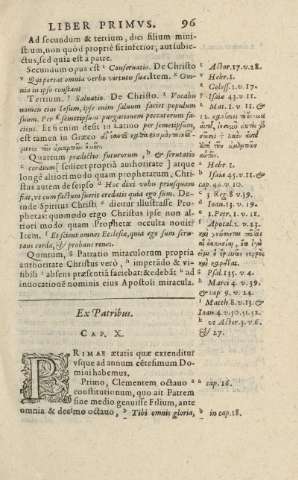 LIBER PRIMVS. 96
Ad secundum & tertium, dici filium mini-
strum, non quòd propriè sit inferior, aut subie-
ctus, sed quia est à patre.
Secundum opus est Conseruatio. De Christo
Quí portat omnia verbo virtutis suæ. Item. Om-
nia in ipso constant
Tertium. Saluatio. De Christo. Vocabis
nomen eius Iesum, ipse enim saluum faciet populum
suum. Per semetipsum purgationem peccatorum fa-
ciens. Etsi enim deest in Latino per semetipsum,
est tamen in Græco
Quartum prædictio futurorum, & scrutatio
cordium scilicet propria authoritate, atque
longè altiori modo quàm prophetarum, Chri-
stus autem de seipso Hoc dixi vobis priusquam
fiat, vt cum factum fuerit credatis quia ego sum. De-
inde Spiritus Christi dicitur illustrasse Pro-
phetas: quomodo ergo Christus ipse non al-
tiori modo quàm Prophetæ occulta nouit?
Item. Et scient omnes Ecclesiæ, quia ego sum scru-
tans corda, & probans renes.
Quintum, Patratio miraculorum propria
authoritate Christus verò, imperãdo & vi-
sibili absens præsentia faciebat: & edebãt ad
inuocationẽ nominis eius Apostoli miracula.
Actor. 17. v. 28.
Hebr. 1.
Coloss. 1. v. 17.
Isaiæ 43. v. 11.
Mat. 1. v. 11. &
Hebr. 1.
Isaiæ 45. v. 11. &
cap. 40. v. 10.
3 Reg. 8 v. 39.
Ioan. 13. v. 19.
1. Petr. 1. v. 11.
Apocal. 2. v. 23.
Psal. 135. v. 4.
Marci 4. v. 39.
& cap 9. v. 24.
Match. 8. v. 13. &
Ioan. 4. v. 50. 51. 52.
vt Actor. 3. v. 6.
& 27.
Ex Patribus.
CAP. X.
PRIMAE ætatis quæ extenditur
vsque ad annum cẽtesimum Do-
mini habemus.
Primo, Clementem octauo
constitutionum, quo ait Patrem
sine medio genuisse Filium, ante
omnia & decimo octauo, Tibi omnis gloria,
cap. 16.
in cap. 18.